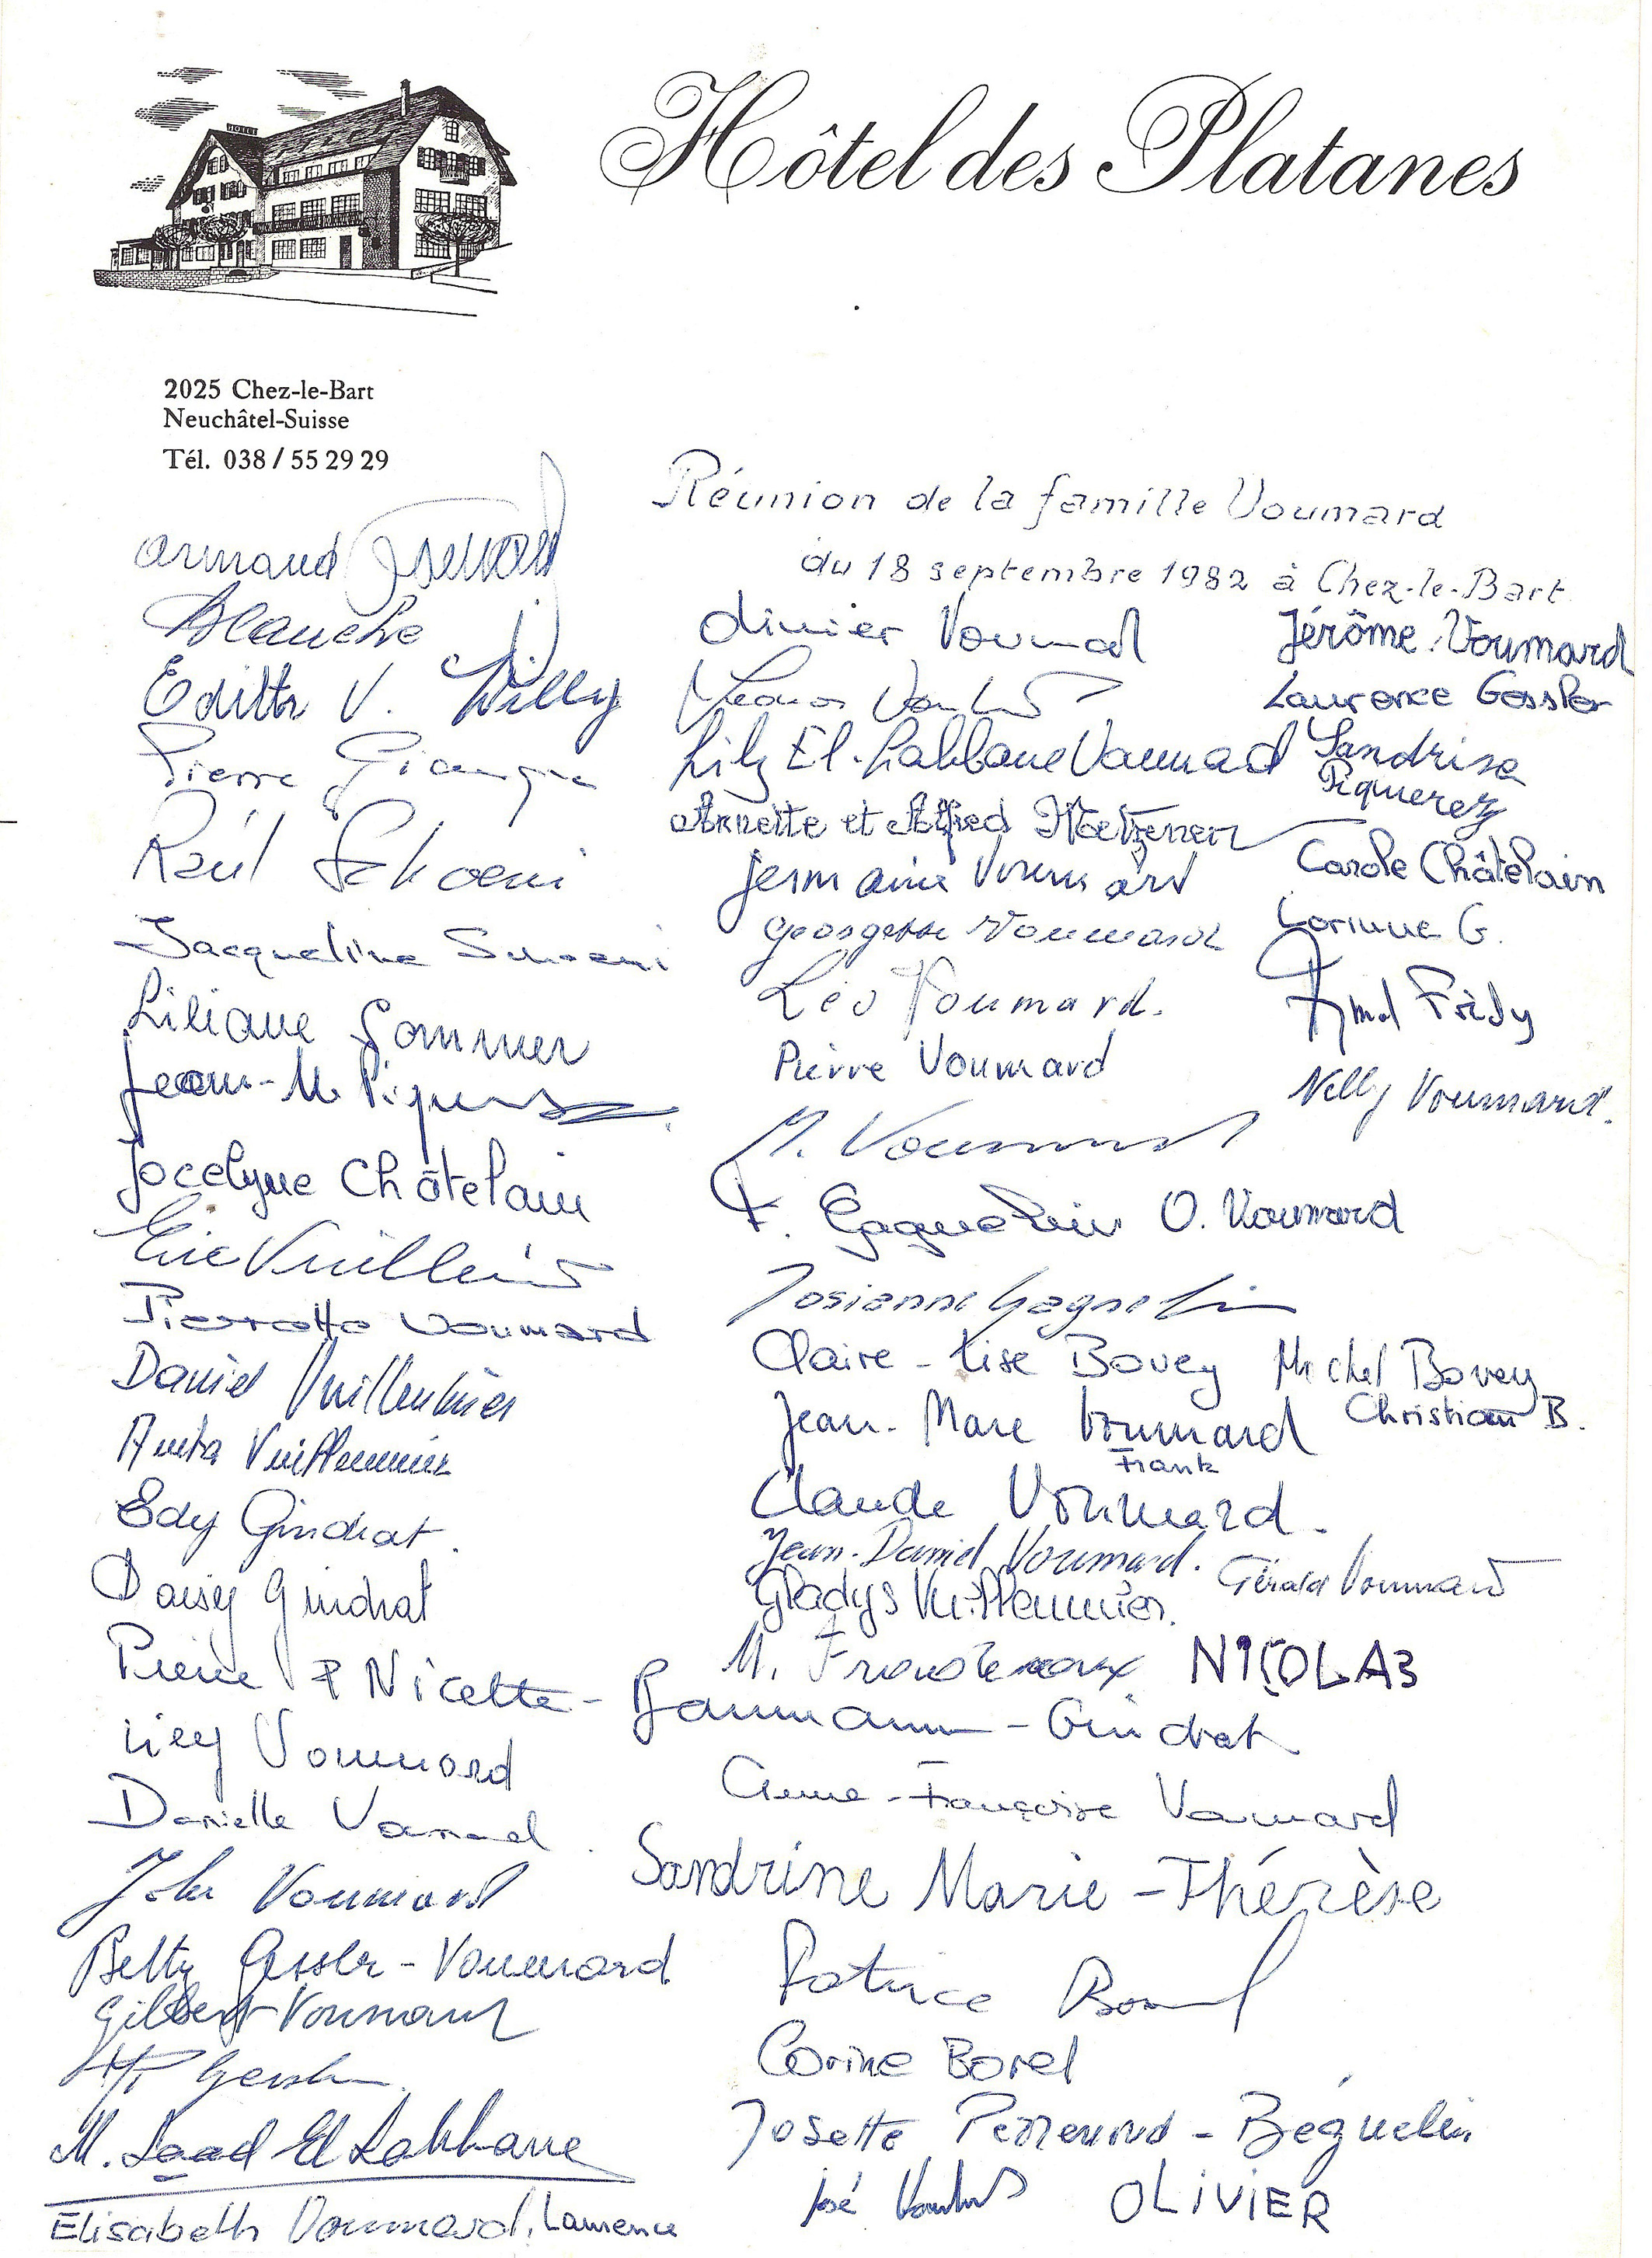 Hôtel des Platanes
HOTEL
2025 Chez-le-Bart
Neuchâtel-Suisse
Tél. 038 / 55 29 29
Réunion de la famille Voumard
du 18 septembre 1982 à Chez-le-Bart
Armand
Blanche
Edith V. Willy
Pierre
Raúl Schoeni
Jacqueline Schoeni
Liliane Sommer
Jean-M. Piquerez
Jocelyne Châtelain
Eric Vuilleumier
Pierrette Voumard
Daniel Vuilleumier
Anita Vuilleumier
Edy Gindrat.
Daisy Gindrat
Pierre & Nicette - Baumann - Gindrat
Lily Voumard
Danielle Voumard
John Voumard
Betty Gessler - Voumard
Gilbert Voumard
HP Gessler
M. Saad El Labbane
Elisabeth Voumard, Laurence
Olivier Voumard
Lily El-Labbane Voumard
Annette et Alfred
Germaine Voumard
Georgette Voumard
Léo Voumard.
Pierre Voumard
M. Voumard
F. Gagnebin O. Voumard
Josianne Gagnebin
Claire-Lise Bovey Michel Bovey
Christian B.
Jean-Marc Voumard
Frank
Claude Voumard.
Jean-Daniel Voumard. Gérald Voumard
Gladys Vuilleumier.
M. Froidevaux NICOLAS
Anne-Françoise Voumard
Sandrine Marie-Thérèse
Patrice Borel
Corine Borel
Josette Perrenoud - Béguelin
José OLIVIER
Jérôme Voumard
Laurence Gessler
Sandrine
Piquerez
Carole Châtelain
Corinne G.
Frédy
Nelly Voumard.